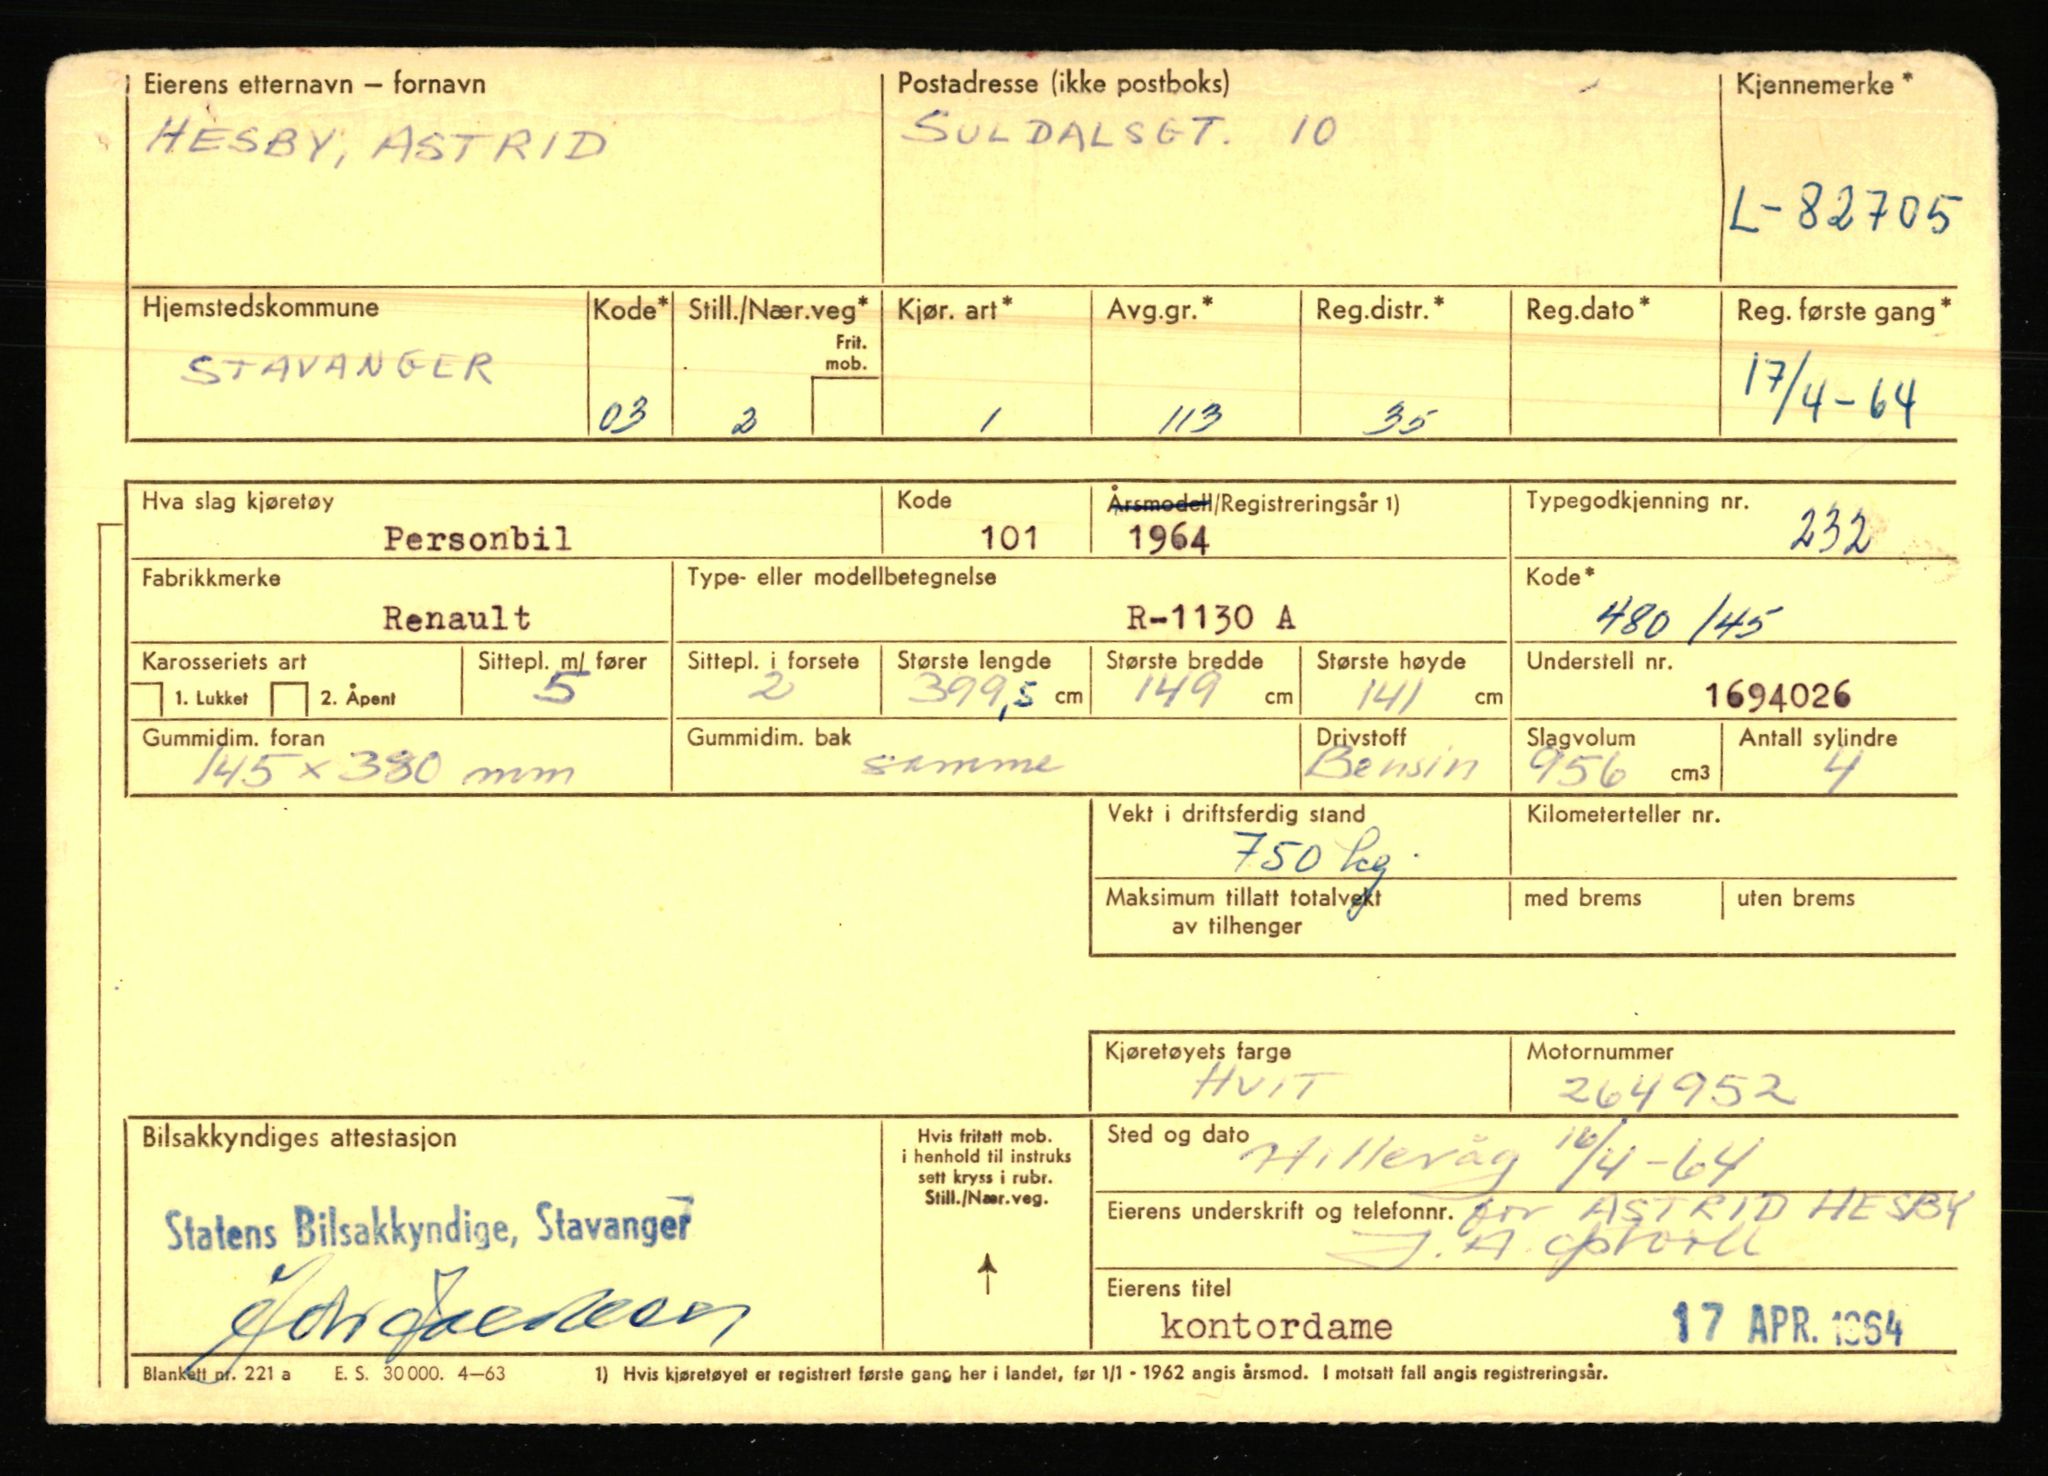 Eierens etternavn – fornavn
HESBY, ASTRID
Postadresse (ikke postboks)
SULDALSGT. 10
Kjennemerke*
L-82705
Hjemstedskommune
STAVANGER
Kode*
03
Still./Nær.veg*
Frit.
mob.
2
Kjør. art*
1
Avg.gr.*
113
Reg.distr.*
35
Reg.dato*
Reg. første gang*
17/4-64
Hva slag kjøretøy
Personbil
Kode
101
Årsmodell/Registreringsår 1)
1964
Typegodkjenning nr.
232
Fabrikkmerke
Renault
Type- eller modellbetegnelse
R-1130 A
Kode*
480/45
Karosseriets art
1. Lukket 2. Åpent
Sittepl. m/ fører
5
Sittepl. i forsete
2
Største lengde
399,5 cm
Største bredde
149 cm
Største høyde
141 cm
Understell nr.
1694026
Gummidim. foran
145 x 380 mm
Gummidim. bak
samme
Drivstoff
Bensin
Slagvolum
956 cm3
Antall sylindre
4
Vekt i driftsferdig stand
750 kg.
Kilometerteller nr.
Maksimum tillatt totalvekt
av tilhenger
med brems
uten brems
Kjøretøyets farge
HVIT
Motornummer
264952
Bilsakkyndiges attestasjon
Statens Bilsakkyndige, Stavanger
Hvis fritatt mob.
i henhold til instruks
sett kryss i rubr.
Still./Nær.veg.
Sted og dato
Hillevåg 16/4-64
Eierens underskrift og telefonnr. for ASTRID HESBY
J. A.
Eierens titel
kontordame
17 APR. 1964
Blankett nr. 221 a E. S. 30 000. 4–63
1) Hvis kjøretøyet er registrert første gang her i landet, før 1/1 - 1962 angis årsmod. I motsatt fall angis registreringsår.